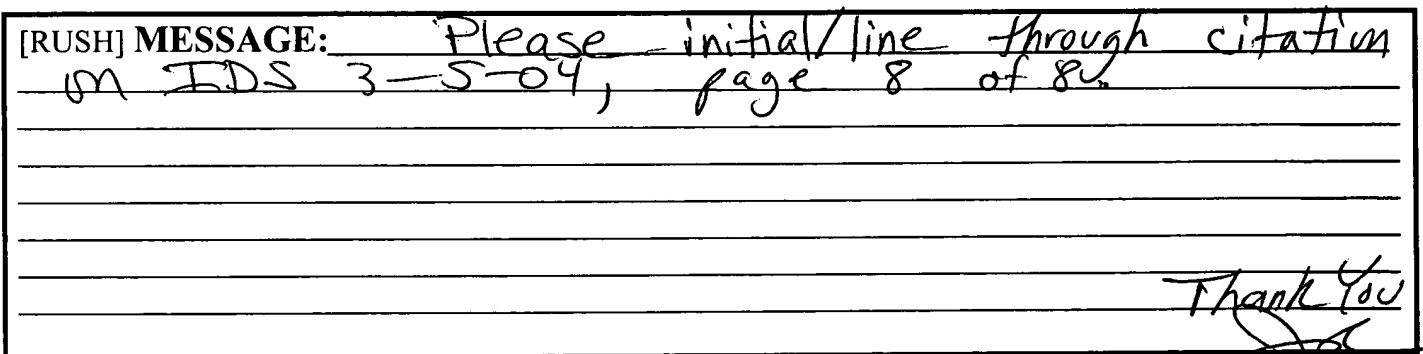 [RUSH] MESSAGE: Please initial/line through citation
on IDS 3-5-04, page 8 of 8.
Thank You